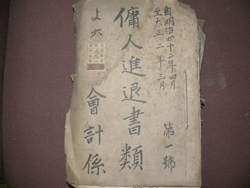 自明治四十二年四月
至大正二年三月
第一號
傭人進退書類
會計係